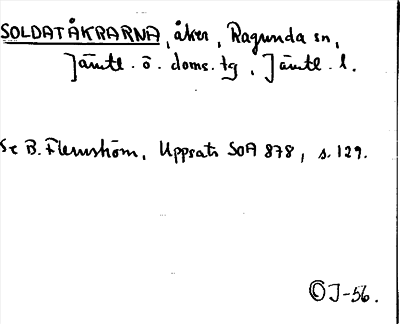 SOLDATÅKRARNA, åker, Ragunda sn,
Jämtl. ö. doms. tg, Jämtl. l.
Se B. Flemström, Uppsats SOA 878, s. 129.
© J-56.